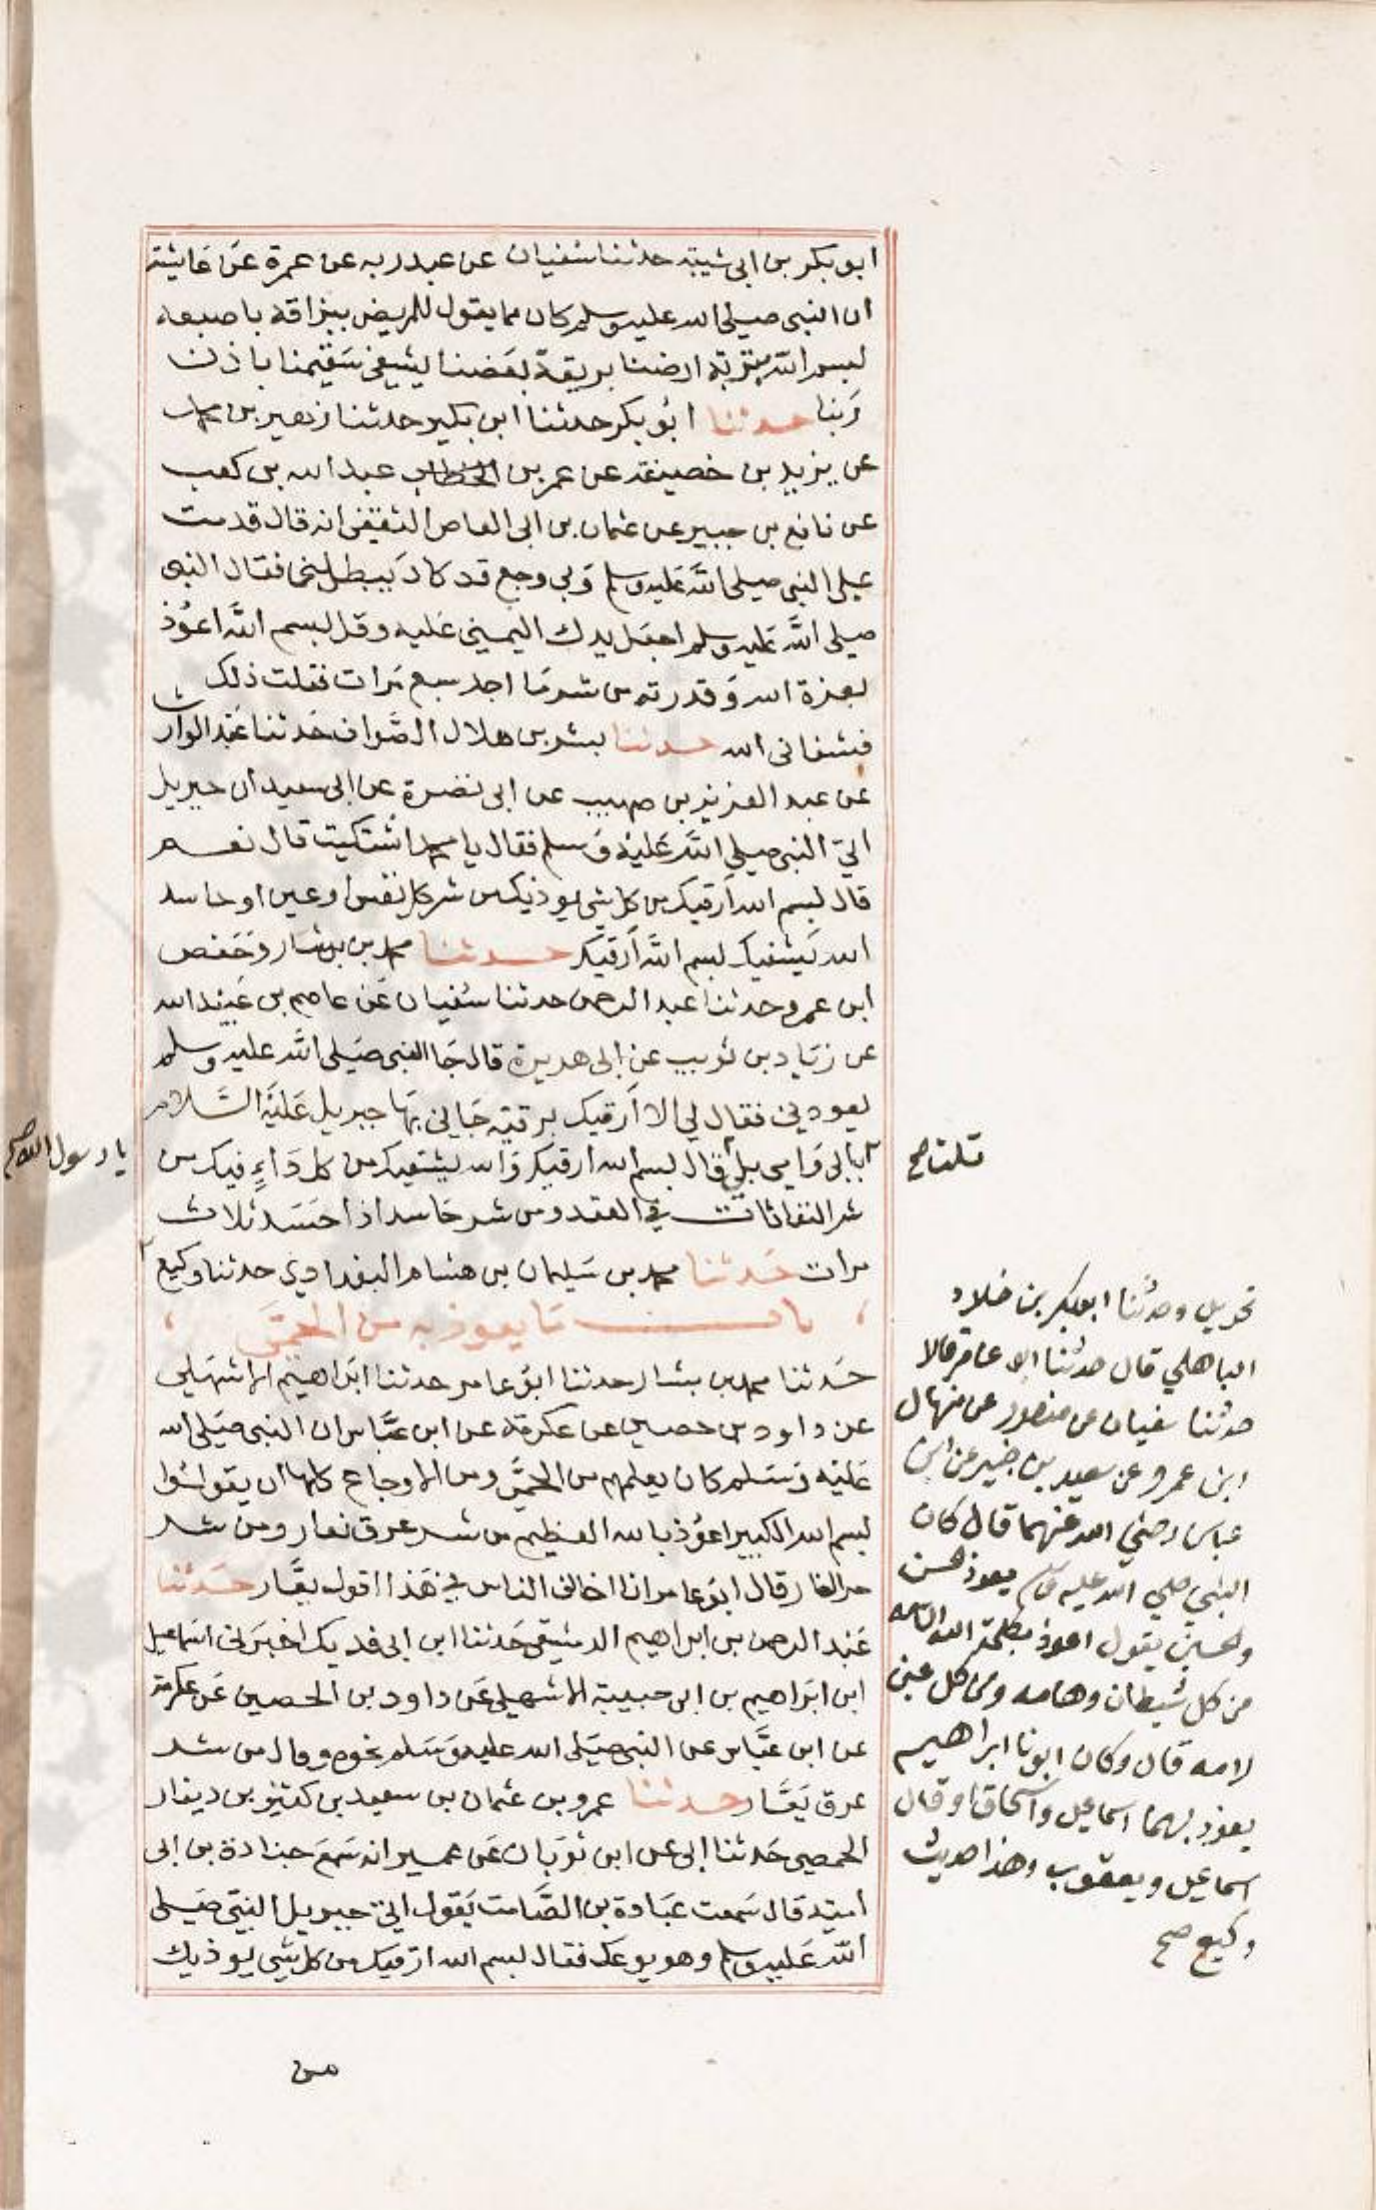 ابو بكر بن ابي شيبة حدثنا سفيان عن عبد ربه عن عمرة عن عايشة
ان النبي صلي الله عليه وسلم كان مما يقول للمريض ببزاقه باصبعه
لبسم الله بتربة ارضنا بريقة بعضنا ليشفي سقيمنا باذن
ربنا حدثنا ابو بكر حدثنا ابن بكير حدثنا زهير بن محمد
عن يزيد بن خصيفة عن عمر بن الخطاب عبد الله بن كعب
عن نافع بن جبير عن عثمان بن ابي العاص الثقفي انه قال قدمت
علي النبي صلي الله عليه وسلم وبي وجع قد كاد يبطلني فقال النبي
صلي الله عليه وسلم اجعل يدك اليمني عليه وقل بسم الله اعوذ
بعزة الله وقدرته من شر ما اجد سبع مرات فقلت ذلك
فشفاني الله حدثنا بشر بن هلال الصواف حدثنا عبد الوارث
عن عبد العزيز بن صهيب عن ابي نضرة عن ابي سعيد ان جبريل
اتي النبي صلي الله عليه وسلم فقال يا محمد اشتكيت قال نعم
قال بسم الله ارقيك من كل شي يوذيك من شر كل نفس او عين او حاسد
الله يشفيك بسم الله ارقيك حدثنا محمد بن بشار وحفص
ابن عمر وحدثنا عبد الرحمن حدثنا سفيان عن عاصم بن عبيد الله
عن زياد بن ثويب عن ابي هريرة قال جا النبي صلي الله عليه وسلم
يعودني فقال لي الا ارقيك برقية جاني بها جبريل عليه السلام
بابي وامي بلي قال بسم الله ارقيك والله يشفيك من كل داء فيك من
شر النفاثات في العقد ومن شر حاسد اذا حسد ثلاث
مرات حدثنا محمد بن سليمان بن هشام البغدادي حدثنا وكيع
باب ما يعوذ به من الحمي
حدثنا محمد بن بشار حدثنا ابو عامر حدثنا ابراهيم الاشهلي
عن داود بن حصين عن عكرمة عن ابن عباس ان النبي صلي الله
عليه وسلم كان يعلمهم من الحمي ومن الاوجاع كلها ان يقولوا
بسم الله الكبير اعوذ بالله العظيم من شر عرق نعار ومن شر
حر النار قال ابو عامر انا اخالف الناس في هذا اقول يقار حدثنا
عبد الرحمن بن ابراهيم الدمشقي حدثنا ابن ابي فديك اخبرني اسماعيل
ابن ابراهيم بن ابي حبيبة الاشهلي عن داود بن الحصين عن عكرمة
عن ابن عباس عن النبي صلي الله عليه وسلم نحوه وقال من شر
عرق يقار حدثنا عمرو بن عثمان بن سعيد بن كثير بن دينار
الحمصي حدثنا ابي عن ابن ثوبان عن عمير انه سمع جنادة بن ابي
امية قال سمعت عبادة بن الصامت يقول اتي جبريل النبي صلي
الله عليه وسلم وهو يوعك فقال بسم الله ارقيك من كل شي يوذيك
من
يا رسول الله صح
قلت صح
تحويل وحدثنا ابو بكر بن خلاد
الباهلي قال حدثنا ابو عامر قالا
حدثنا سفيان عن منصور عن منهال
ابن عمرو عن سعيد بن جبير عن ابن
عباس رضي الله عنهما قال كان
النبي صلي الله عليه وسلم يعوذ الحسن
والحسين يقول اعوذ بكلمة الله التامه
من كل شيطان وهامه ومن كل عين
لامه قال وكان ابونا ابراهيم
يعوذ بهما اسماعيل واسحاق او قال
اسماعيل ويعقوب وهذا حديث
وكيع صح